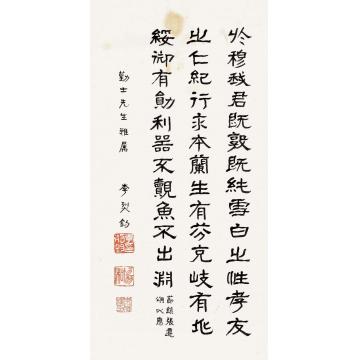 於穆我君既敦既純雪白之性孝友
之仁紀行求本蘭生有芬克岐有兆
綏御有勛利器不覿魚不出淵
節臨張遷
頌以應
勤士先生雅屬 李烈鈞